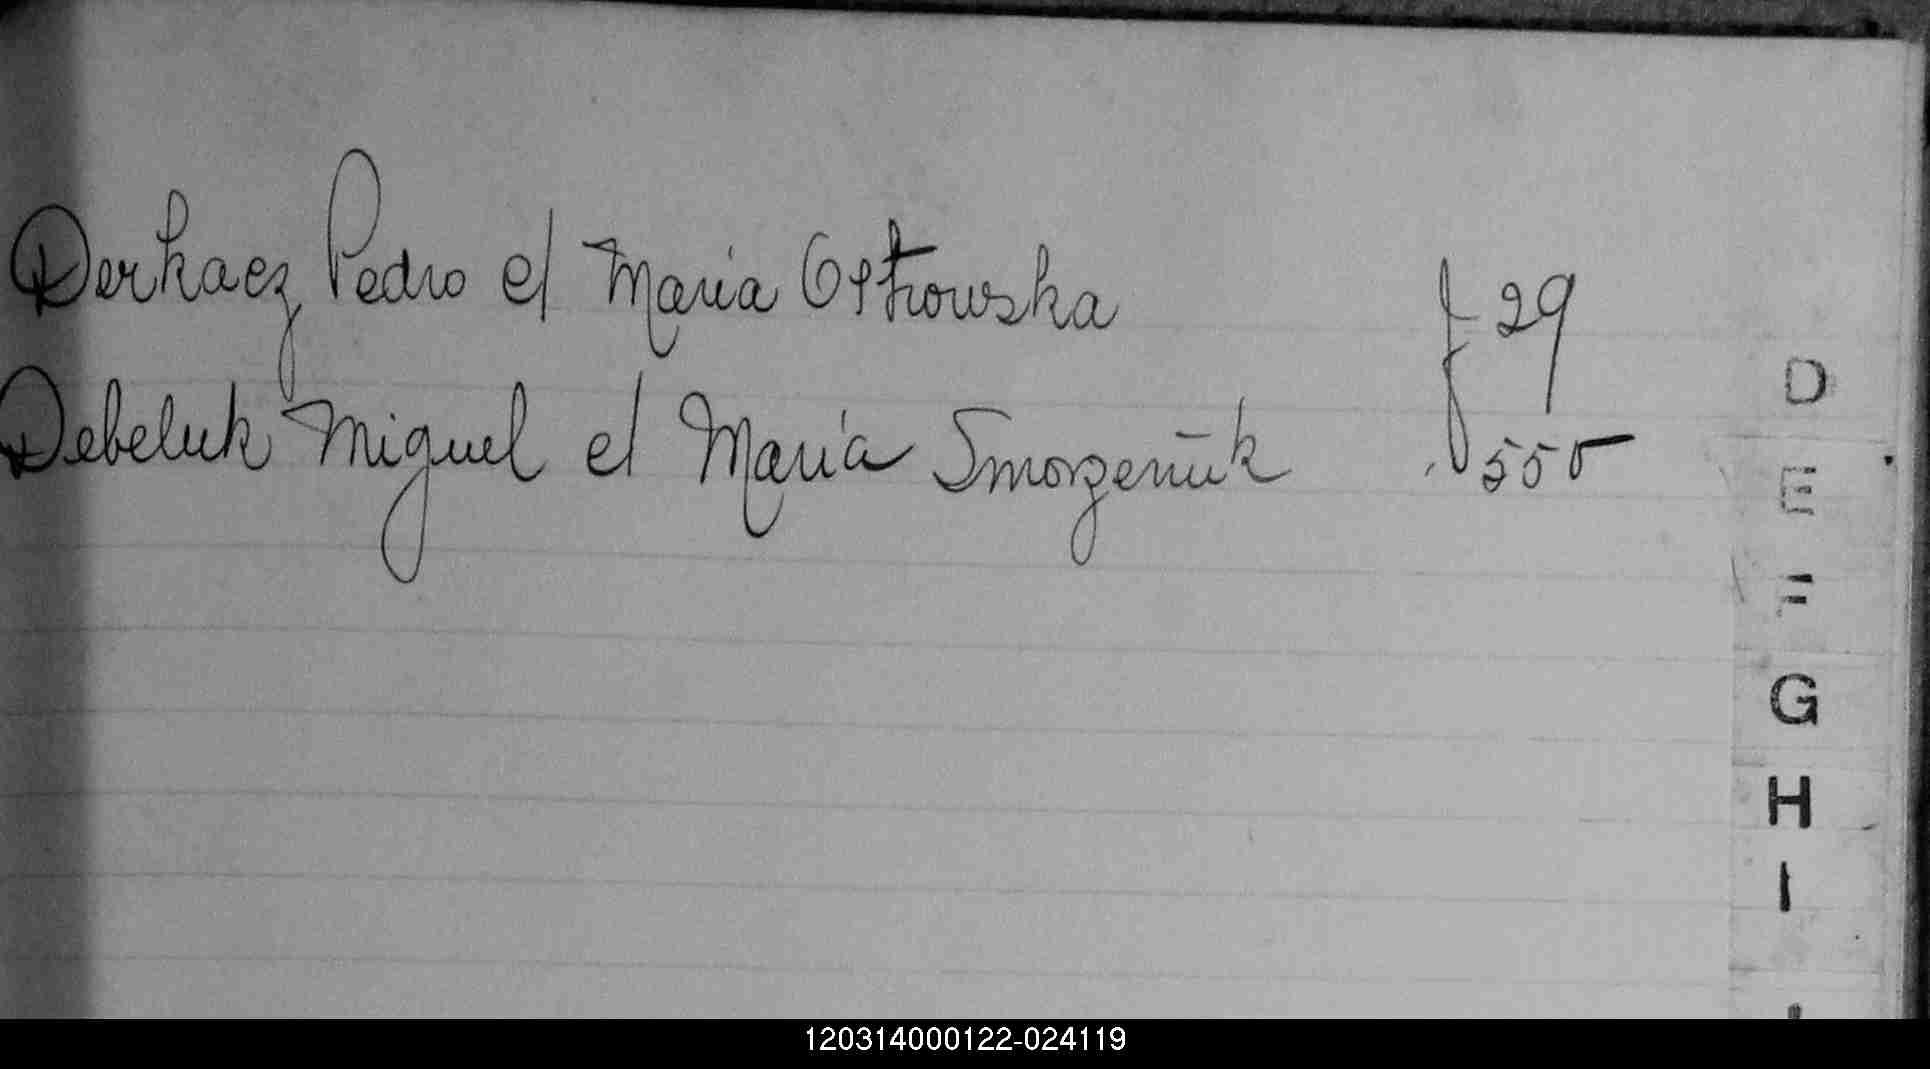 Derkacz Pedro c/ Maria Ostrowska f 29
Debeluk Miguel c/ María Smorzeniuk f 555
D
E
F
G
H
I
120314000122-024119